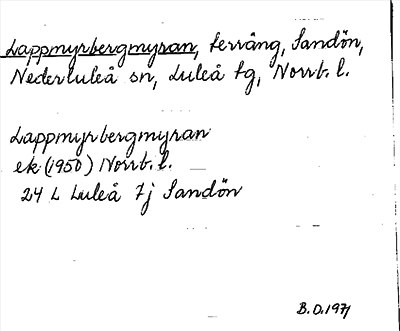 Lappmyrbergmyran, terräng, Sandön,
Nederluleå sn, Luleå tg, Norrb. l.
Lappmyrbergmyran
ek (1950) Norrb. l.
24 L Luleå 7j Sandön
B.O.1971